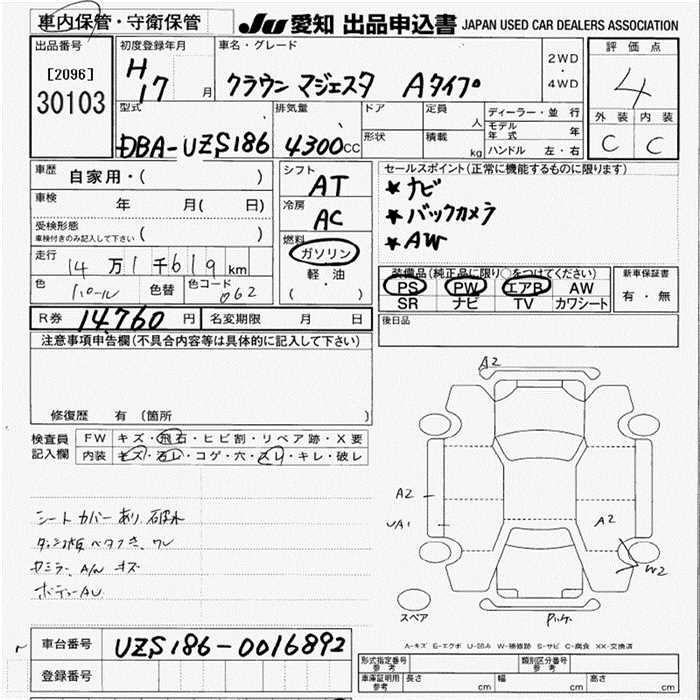 車内保管・守衛保管
JU 愛知 出品申込書 JAPAN USED CAR DEALERS ASSOCIATION
出品番号
[2096]
30103
初度登録年月
H 17 月
車名・グレード
クラウン マジェスタ Aタイプ
2WD
・
4WD
評価点
4
外装 内装
C C
型式
DBA-UZS186
排気量
4300CC
ドア
形状
定員
人
積載
kg
ディーラー・並行
モデル年式 年
ハンドル 左・右
車歴 自家用・( )
車検 年 月( 日)
受検形態
車検付きのみ記入して下さい ( )
走行
14万1千619km
色 パール 色替 色コード 062
シフト AT
冷房 AC
燃料 ガソリン
軽・油
( )
セールスポイント(正常に機能するものに限ります)
★ナビ
★バックカメラ
★AW
装備品(純正品に限り○をつけてください)
PS PW エアB AW
SR ナビ TV カワシート
新車保証書
有・無
後日品
R券 14,760円 名変期限 月 日
注意事項申告欄(不具合内容等は具体的に記入して下さい)
修復歴 有(箇所 )
検査員記入欄
FW キズ・飛石・ヒビ割・リペア跡・X要
内装 キズ・ヨレ・コゲ・穴・スレ・キレ・破レ
シートカバーあり
ボディーAU
A2
A2
A2
W2
スペア
A-キズ E-エクボ U-凹み W-補修跡 S-サビ C-腐食 XX-交換済
車台番号 UZS186-0016892
登録番号
形式指定番号 参考
類別区分番号 参考
車庫証明用 参考 長さ cm 幅 cm 高さ cm